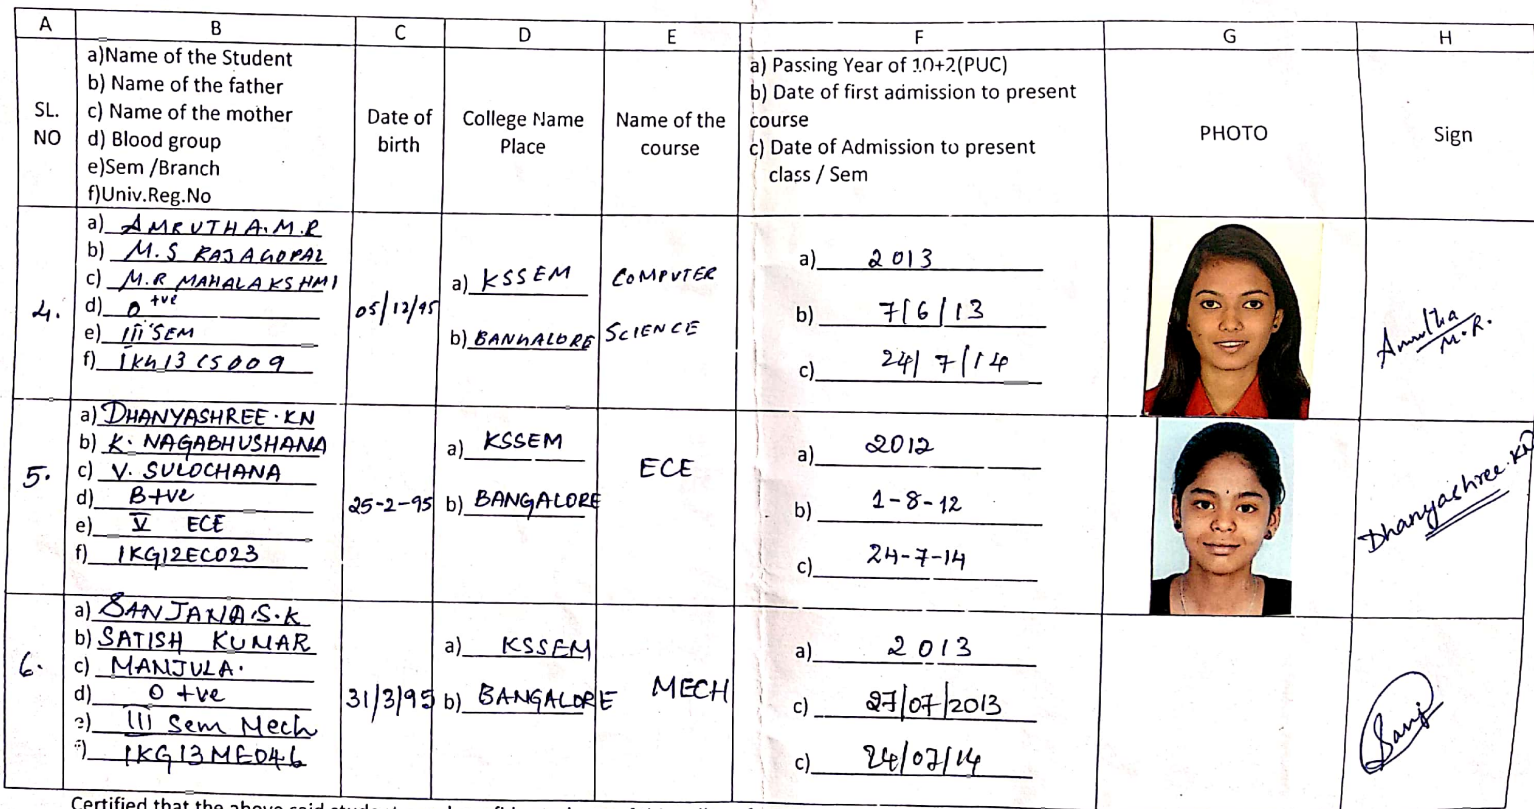 A B C D E F G H
SL. NO
a)Name of the Student
b) Name of the father
c) Name of the mother
d) Blood group
e)Sem /Branch
f)Univ.Reg.No
Date of birth
College Name Place
Name of the course
a) Passing Year of 10+2(PUC)
b) Date of first admission to present
course
c) Date of Admission to present
class / Sem
PHOTO
Sign
4.
a) AMRUTHA.M.R
b) M.S RAJAGOPAL
c) M.R MAHALAKSHMI
d) O +ve
e) III SEM
f) 1KG13CS009
05/12/95
a) KSSEM
b) BANGALORE
COMPUTER
SCIENCE
a) 2013
b) 7/6/13
c) 24/7/14
Amrutha
M.R.
5.
a) DHANYASHREE.KN
b) K. NAGABHUSHANA
c) V. SULOCHANA
d) B+ve
e) V ECE
f) 1KG12EC023
25-2-95
a) KSSEM
b) BANGALORE
ECE
a) 2012
b) 1-8-12
c) 24-7-14
Dhanyashree.KN
6.
a) SANJANA.S.K
b) SATISH KUMAR
c) MANJULA.
d) O +ve
e) III Sem Mech
f) 1KG13ME046
31/3/95
a) KSSEM
b) BANGALORE
MECH
a) 2013
c) 27/07/2013
c) 24/07/14
Sanj
Certified that the above said student